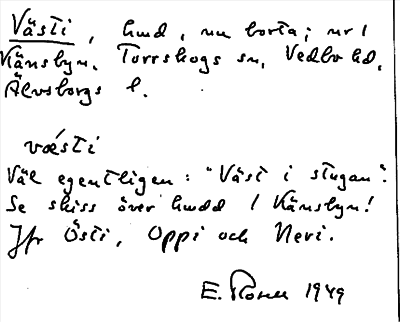 Västi, hmd, nu borta; nr 1
Känsbyn. Torrskogs sn, Vedbo hd,
Älvsborgs l.
væ´sti
Väl egentligen: "Väst i stugan".
Se skiss över hmdd / Känsbyn!
Jfr Östi, Oppi och Neri.
E. Rosell 1949